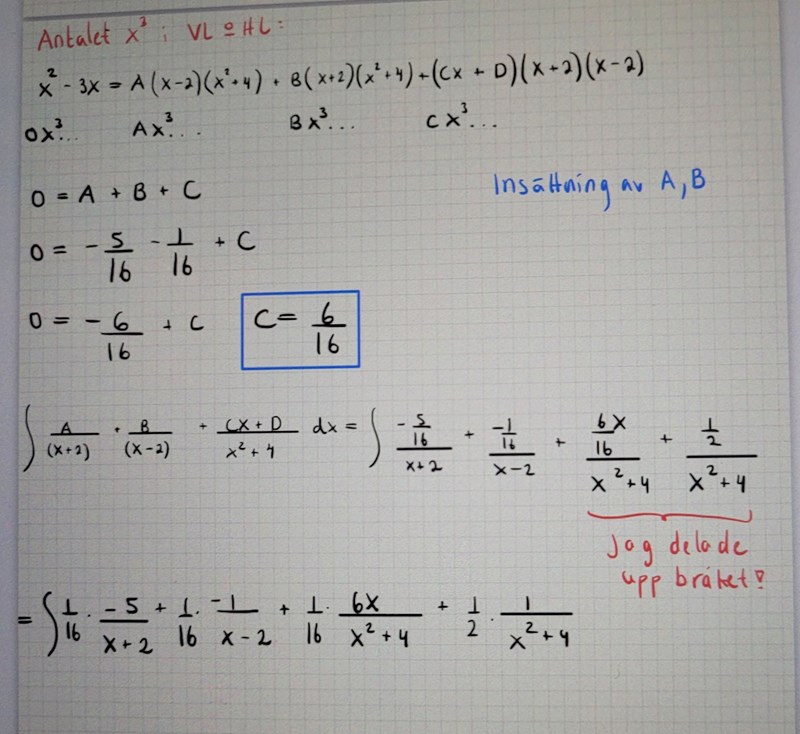 Antalet x³ i VL o HL:
x² - 3x = A(x-2)(x²+4) + B(x+2)(x²+4) + (Cx + D)(x+2)(x-2)
0x³... Ax³... Bx³... Cx³...
0 = A + B + C
Insättning av A, B
0 = - 5/16 - 1/16 + C
0 = - 6/16 + C
C = 6/16
∫ A/(x+2) + B/(x-2) + (Cx + D)/(x² + 4) dx = ∫ (-5/16)/(x+2) + (-1/16)/(x-2) + (6x/16)/(x²+4) + (1/2)/(x²+4)
Jag delade
upp bråket!
= ∫ 1/16 · -5/(x+2) + 1/16 · -1/(x-2) + 1/16 · 6x/(x²+4) + 1/2 · 1/(x²+4)